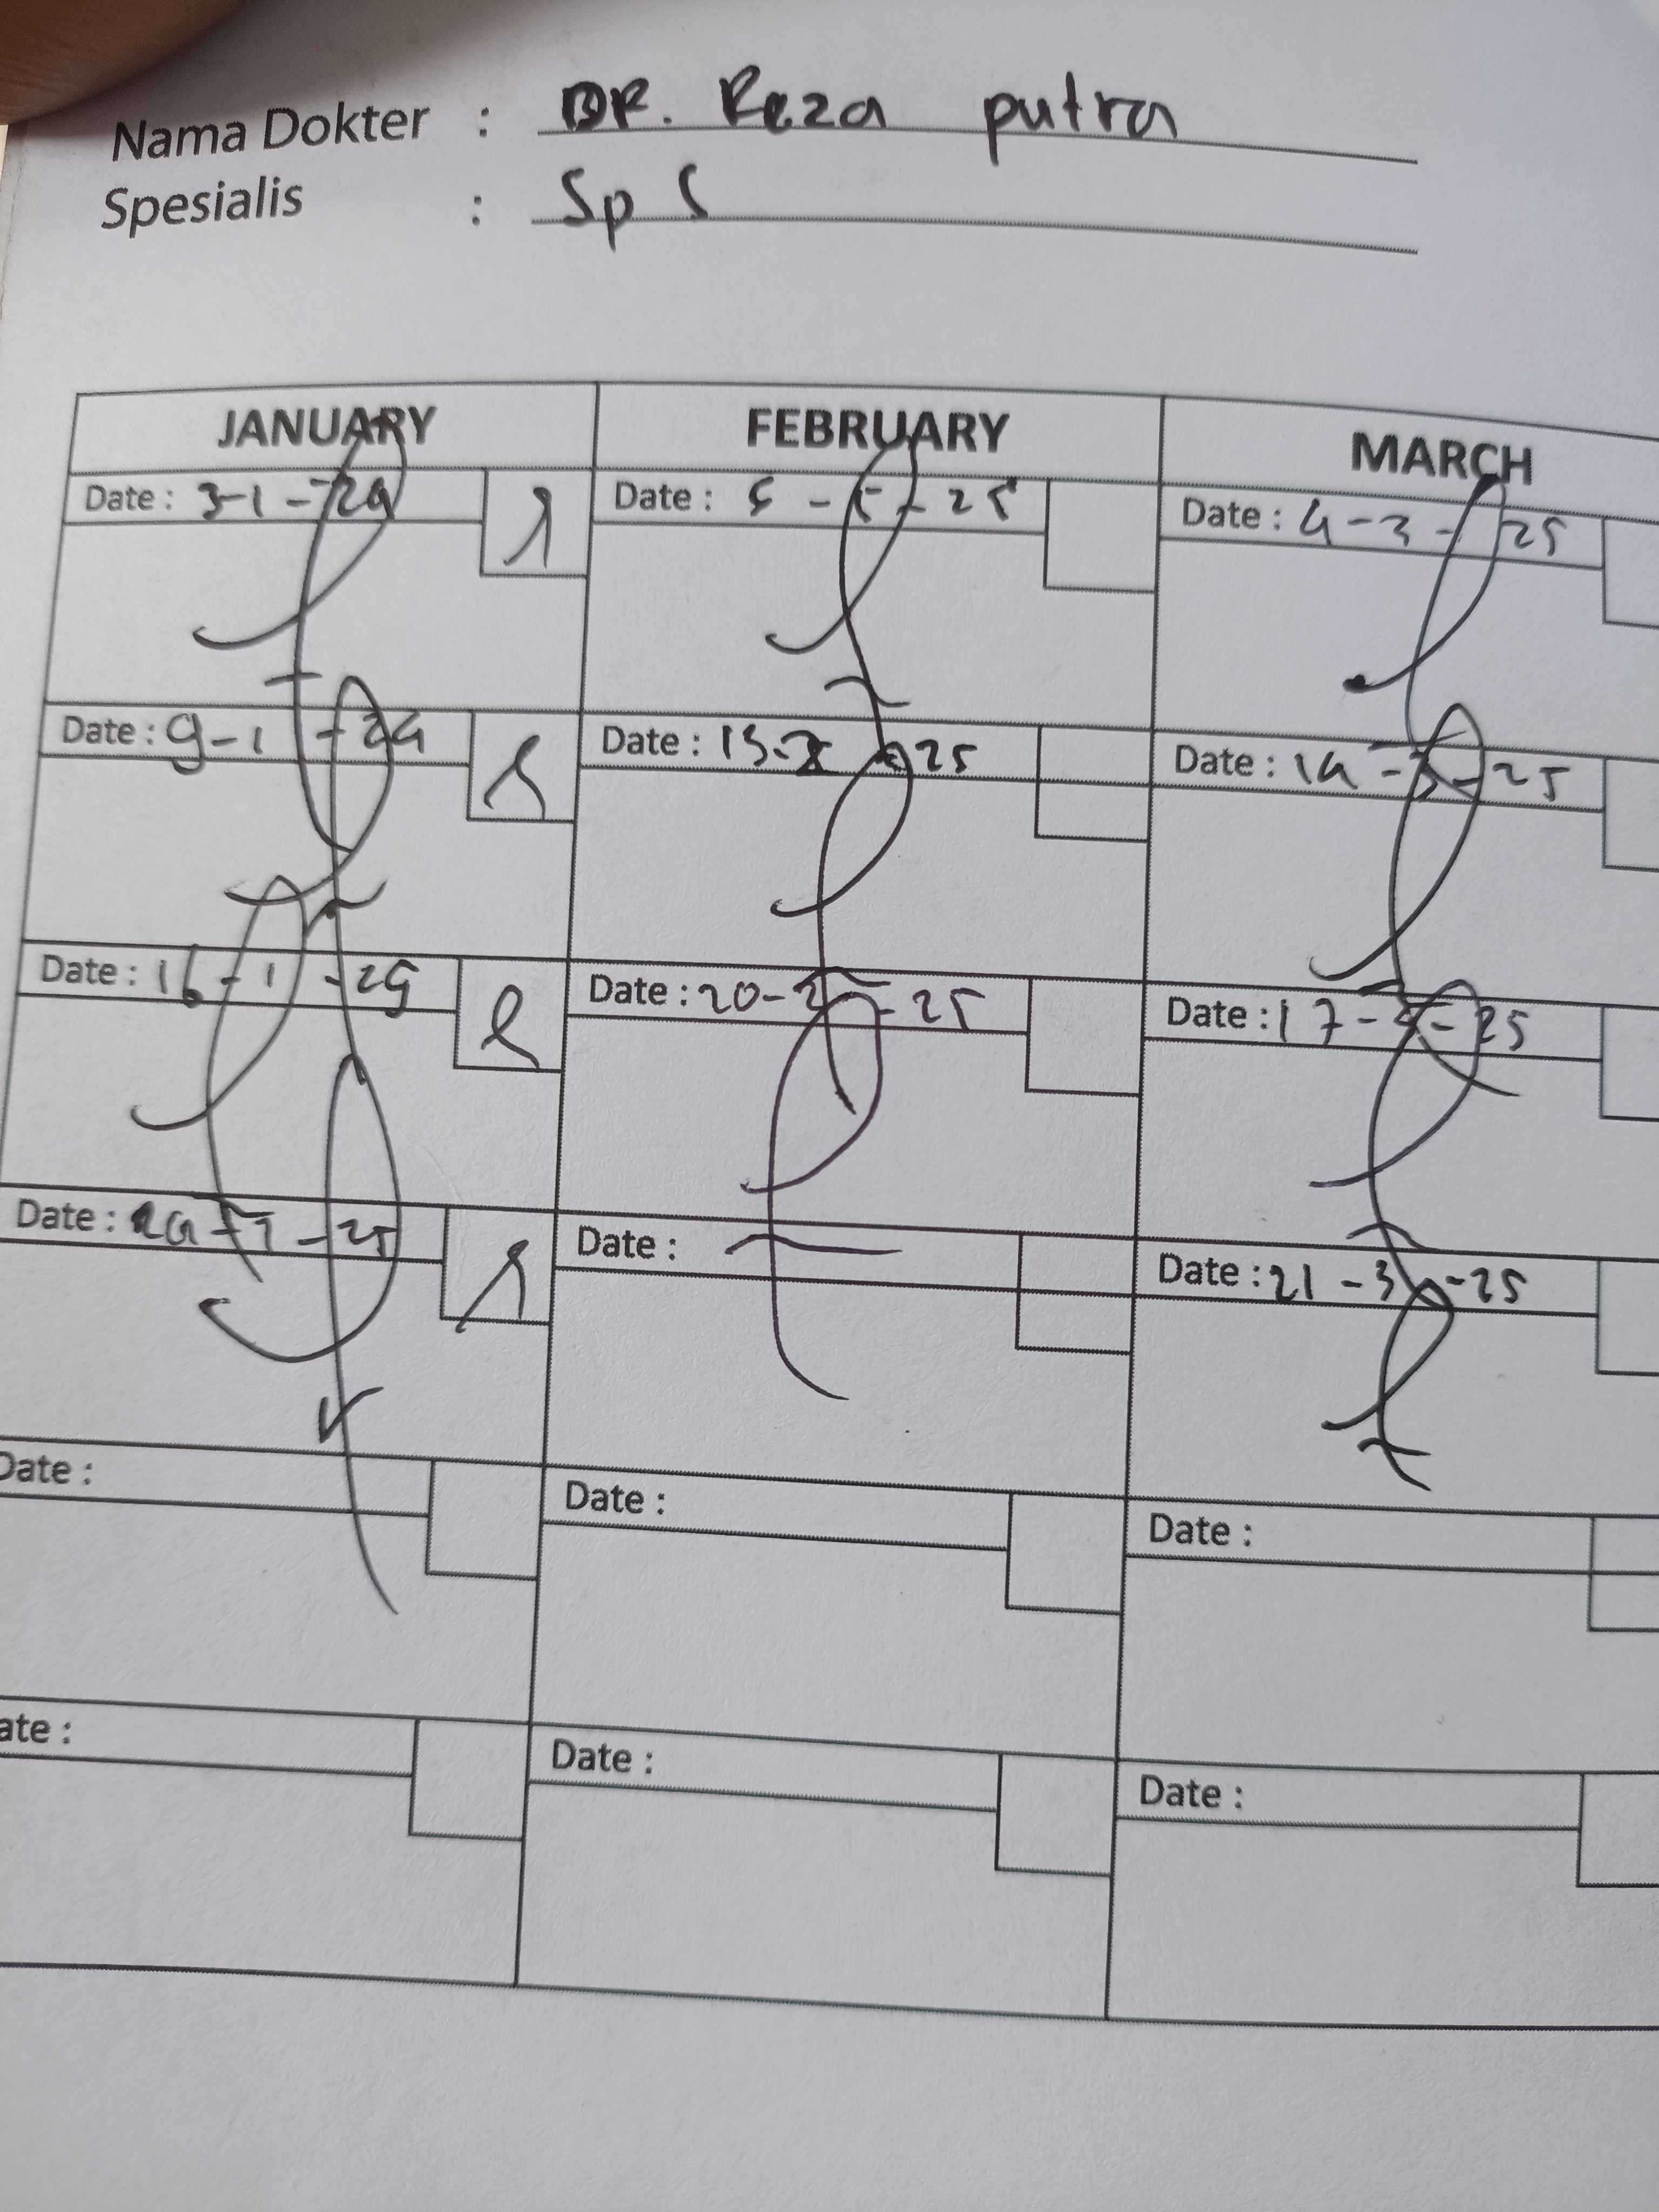 Nama Dokter : DR. Reza putra
Spesialis : Sp S
JANUARY FEBRUARY MARCH
Date : 3-1-24 Date : 5 - - 25 Date : 4-3-25
Date : 9-1-24 Date : 13-2-25 Date : 14-3-25
Date : 16-1-25 Date : 20-2-25 Date : 17-3-25
Date : 24-1-25 Date : Date : 21-3-25
Date : Date : Date :
ate : Date : Date :